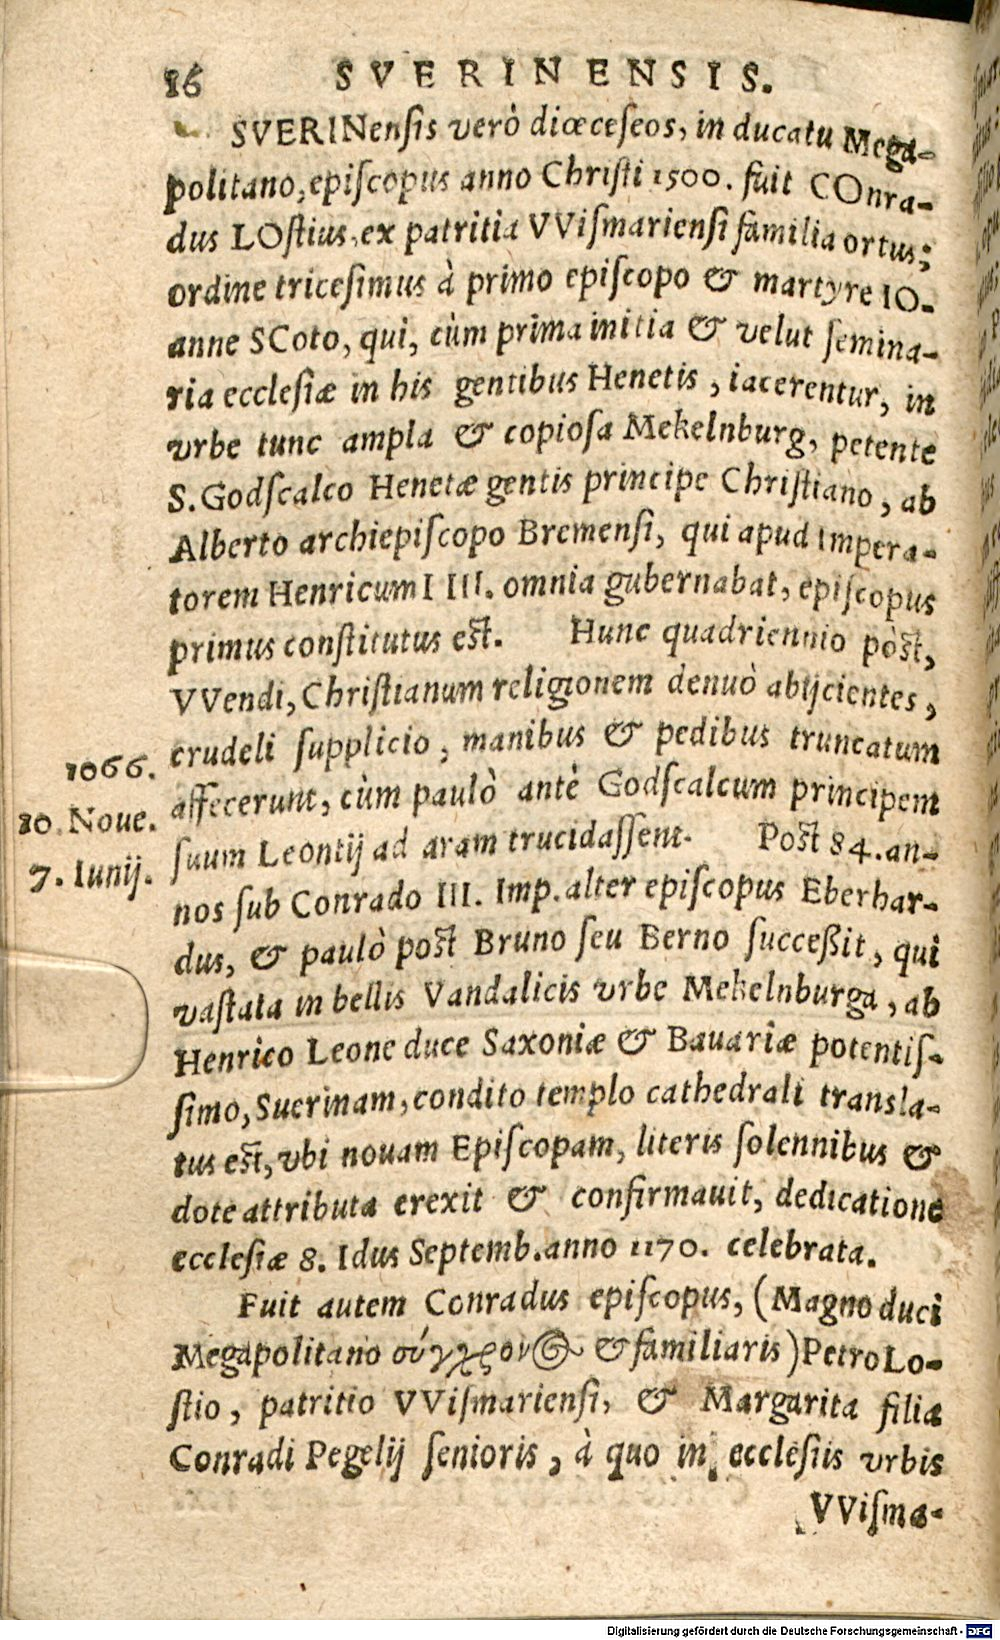 16 SVERINENSIS.
SVERINenſis verò diœceſeos, in ducatu Mega-
politano, epiſcopus anno Chriſti 1500. fuit COnra-
dus LOſtius, ex patritia VViſmarienſi familia ortus;
ordine triceſimus à primo epiſcopo & martyre IO-
anne SCoto, qui, cùm prima initia & velut ſemina-
ria eccleſiæ in his gentibus Henetis, iacerentur, in
vrbe tunc ampla & copioſa Mekelnburg, petente
S. Godſcalco Henetæ gentis principe Chriſtiano, ab
Alberto archiepiſcopo Bremenſi, qui apud Impera-
torem Henricum IIII. omnia gubernabat, epiſcopus
primus conſtitutus eſt. Hunc quadriennio pòſt,
VVendi, Chriſtianum religionem denuò abijcientes,
crudeli ſupplicio, manibus & pedibus truncatum
1066.
affecerunt, cùm paulò antè Godſcalcum principem
10. Noue.
ſuum Leontij ad aram trucidaſſent. Poſt 84. an-
7. Iunij.
nos ſub Conrado III. Imp. alter epiſcopus Eberhar-
dus, & paulò poſt Bruno ſeu Berno ſucceßit, qui
vaſtata in bellis Vandalicis vrbe Mekelnburga, ab
Henrico Leone duce Saxoniæ & Bauariæ potentiſ-
ſimo, Suerinam, condito templo cathedrali transla-
tus eſt, vbi nouam Epiſcopam, literis ſolennibus &
dote attributa erexit & confirmauit, dedicatione
eccleſiæ 8. Idus Septemb. anno 1170. celebrata.
Fuit autem Conradus epiſcopus, (Magno duci
Megapolitano σύγχρονος & familiaris) Petro Lo-
ſtio, patritio VViſmarienſi, & Margarita filia
Conradi Pegelij ſenioris, à quo in eccleſiis vrbis
VViſma-
Digitalisierung gefördert durch die Deutsche Forschungsgemeinschaft - DFG